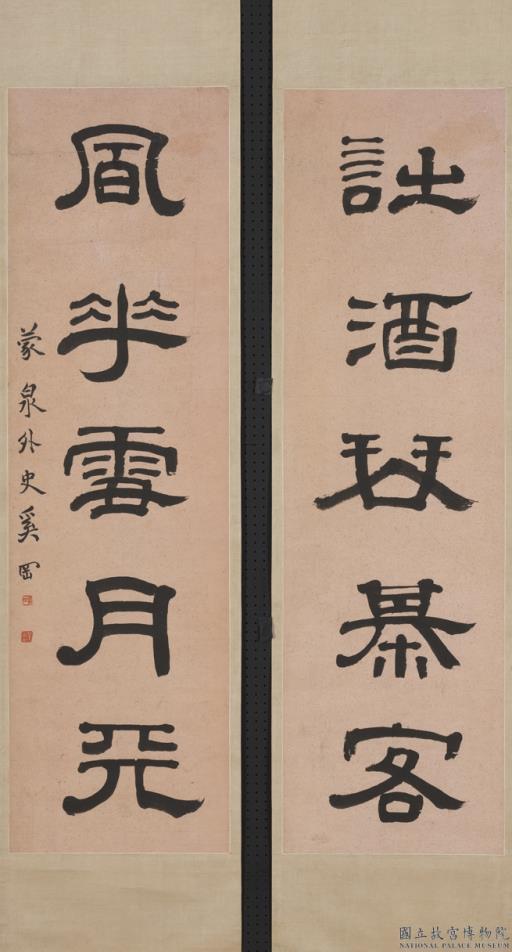 詩酒琴棊客
風華雪月天
蒙泉外史奚岡
國立故宮博物院
NATIONAL PALACE MUSEUM